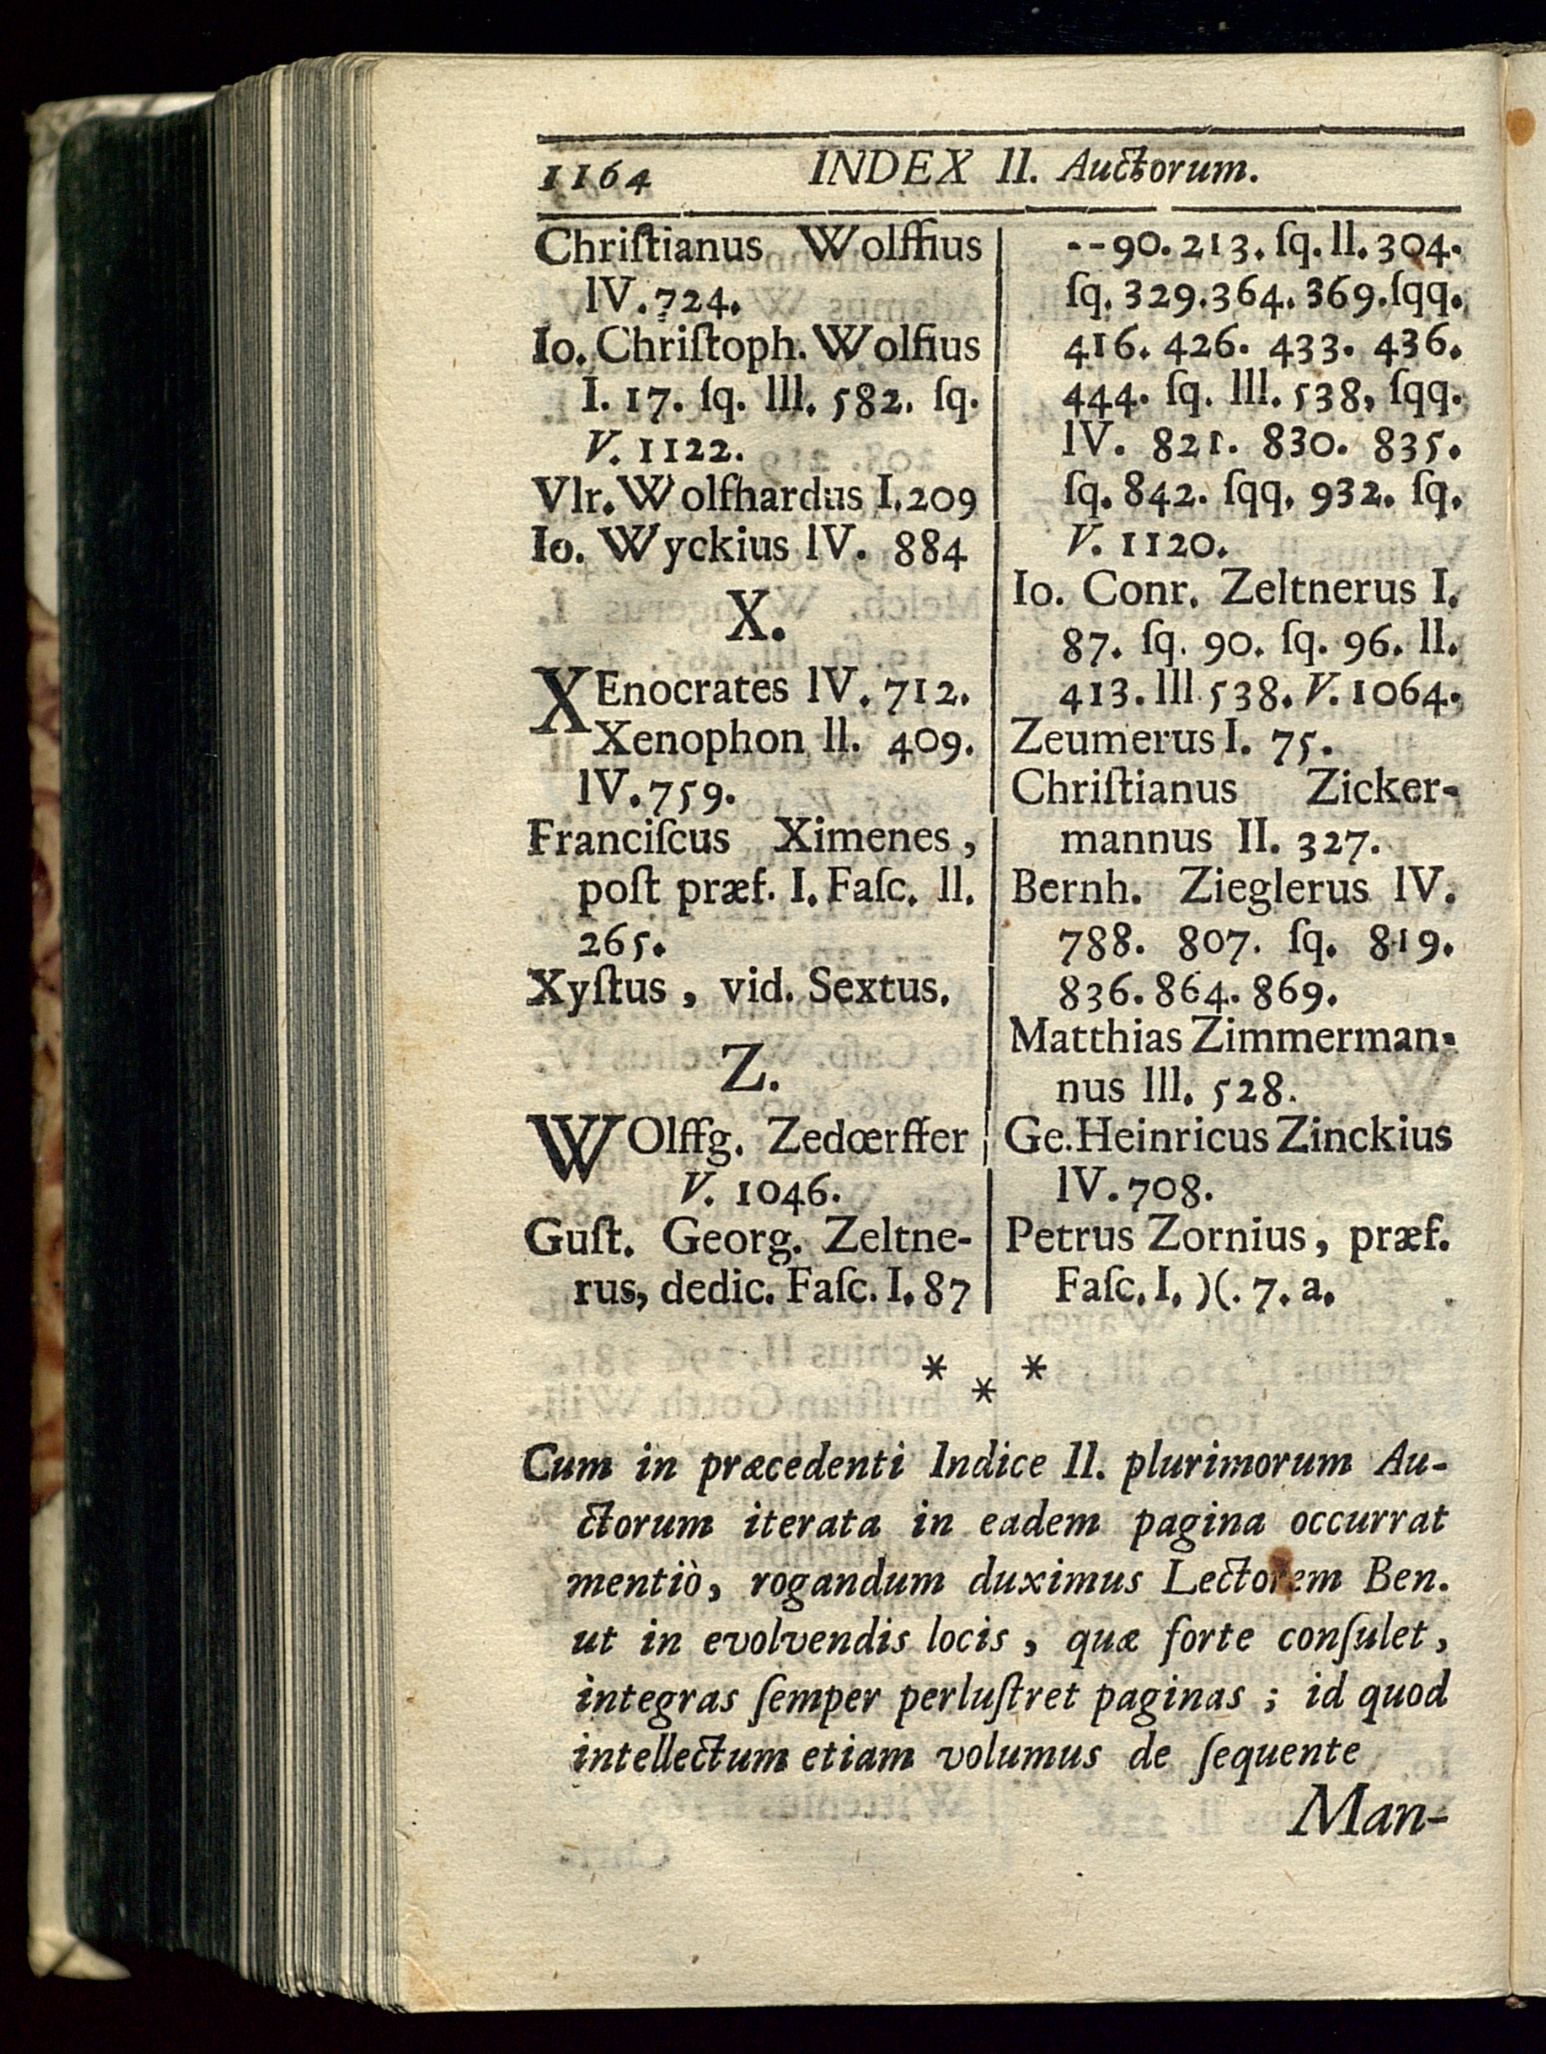 1164 INDEX II. Auctorum.
Chriſtianus Wolffius
IV. 724.
Io. Chriſtoph. Wolfius
I. 17. ſq. III. 582. ſq.
V. 1122.
Vlr. Wolfhardus I. 209
Io. Wyckius IV. 884
X.
XEnocrates IV. 712.
Xenophon II. 409.
IV. 759.
Franciſcus Ximenes,
poſt præf. I. Faſc. II.
265.
Xyſtus, vid. Sextus.
Z.
WOlffg. Zedœrffer
V. 1046.
Guſt. Georg. Zeltne-
rus, dedic. Faſc. I. 87
--90. 213. ſq. II. 304.
ſq. 329. 364. 369. ſqq.
416. 426. 433. 436.
444. ſq. III. 538, ſqq.
IV. 821. 830. 835.
ſq. 842. ſqq. 932. ſq.
V. 1120.
Io. Conr. Zeltnerus I.
87. ſq. 90. ſq. 96. II.
413. III 538. V. 1064.
Zeumerus I. 75.
Chriſtianus Zicker-
mannus II. 327.
Bernh. Zieglerus IV.
788. 807. ſq. 819.
836. 864. 869.
Matthias Zimmerman-
nus III. 528.
Ge. Heinricus Zinckius
IV. 708.
Petrus Zornius, præf.
Faſc. I. )(. 7. a.
* * *
Cum in præcedenti Indice II. plurimorum Au-
ctorum iterata in eadem pagina occurrat
mentiò, rogandum duximus Lectorem Ben.
ut in evolvendis locis, quæ forte conſulet,
integras ſemper perluſtret paginas; id quod
intellectum etiam volumus de ſequente
Man-